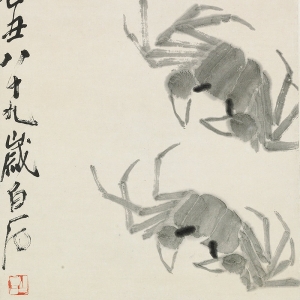 丑八十九歲白石